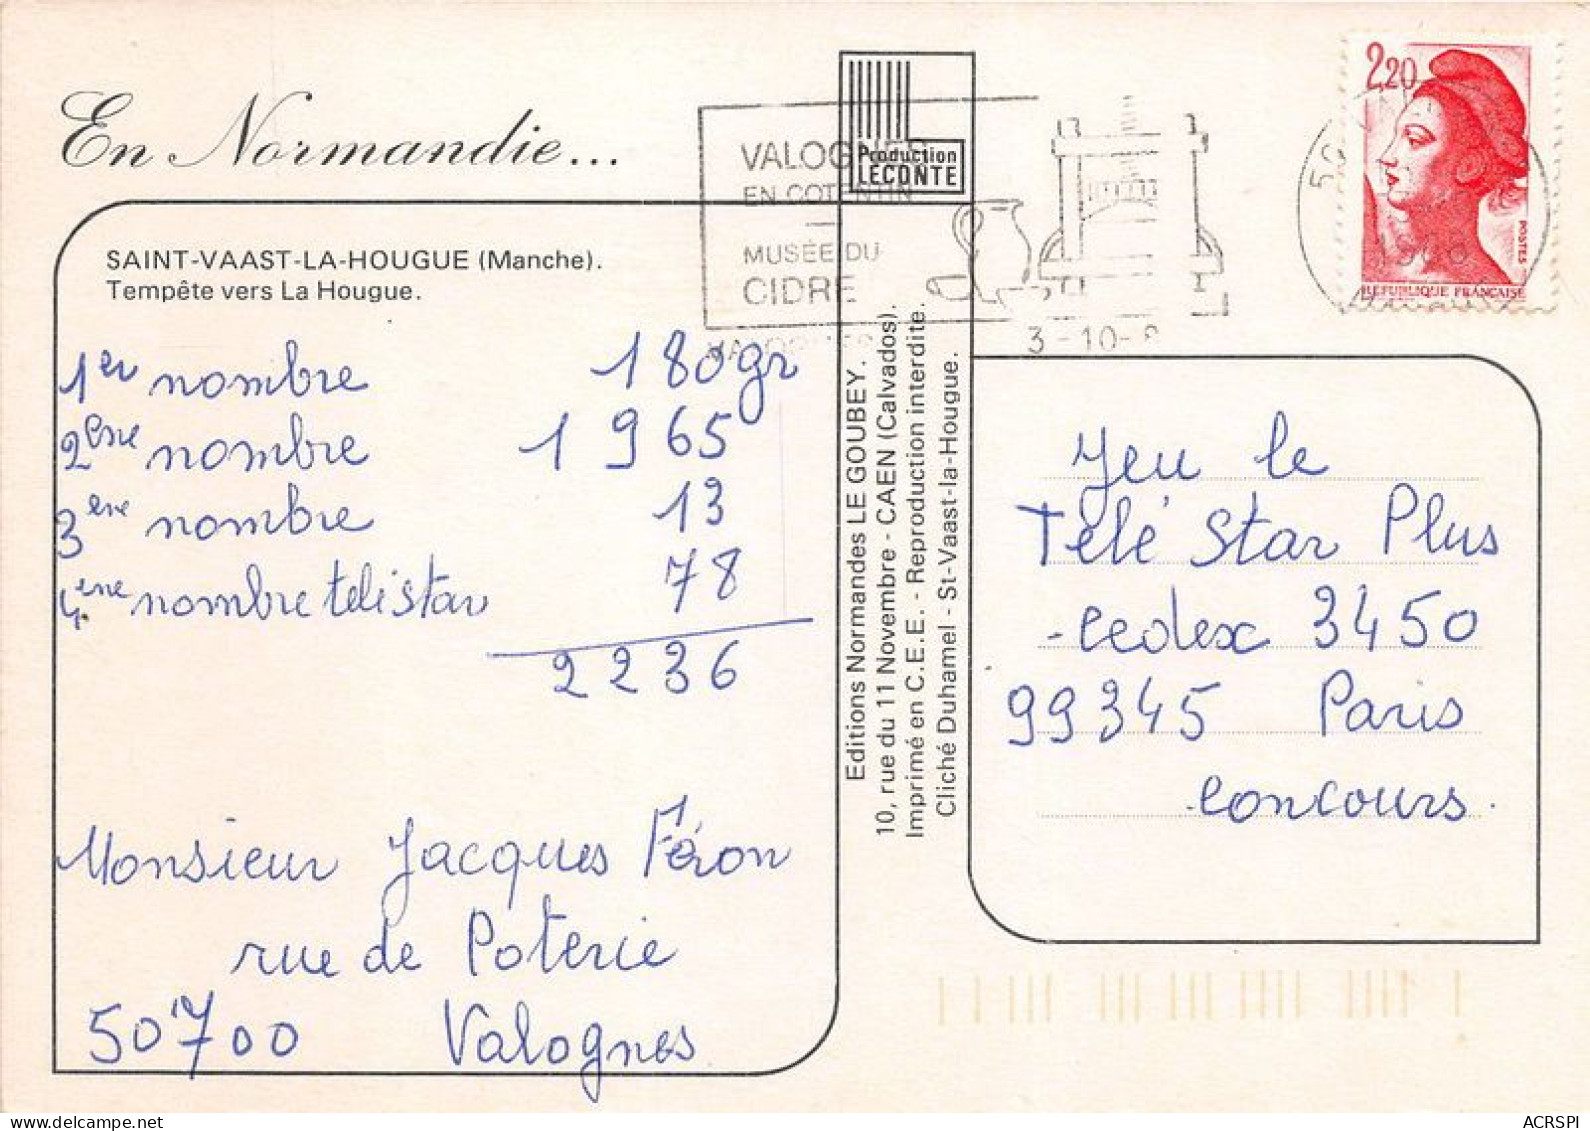 En Normandie...
SAINT-VAAST-LA-HOUGUE (Manche).
Tempête vers La Hougue.
1er nombre 180gr
2ème nombre 1 965
3ème nombre 13
4ème nombre téléstar 78
2236
Monsieur Jacques Féron
rue de Poterie
50700 Valognes
Production
LECONTE
VALOGNES
EN COTENTIN
MUSÉE DU
CIDRE
3-10-8
Editions Normandes LE GOUBEY.
10, rue du 11 Novembre - CAEN (Calvados).
Imprimé en C.E.E. - Reproduction interdite.
Cliché Duhamel - St-Vaast-la-Hougue.
2,20
POSTES
REPUBLIQUE FRANÇAISE
Jeu le
Télé Star Plus
cedex 3450
99345 Paris
concours.
delcampe.net
ACRSPI